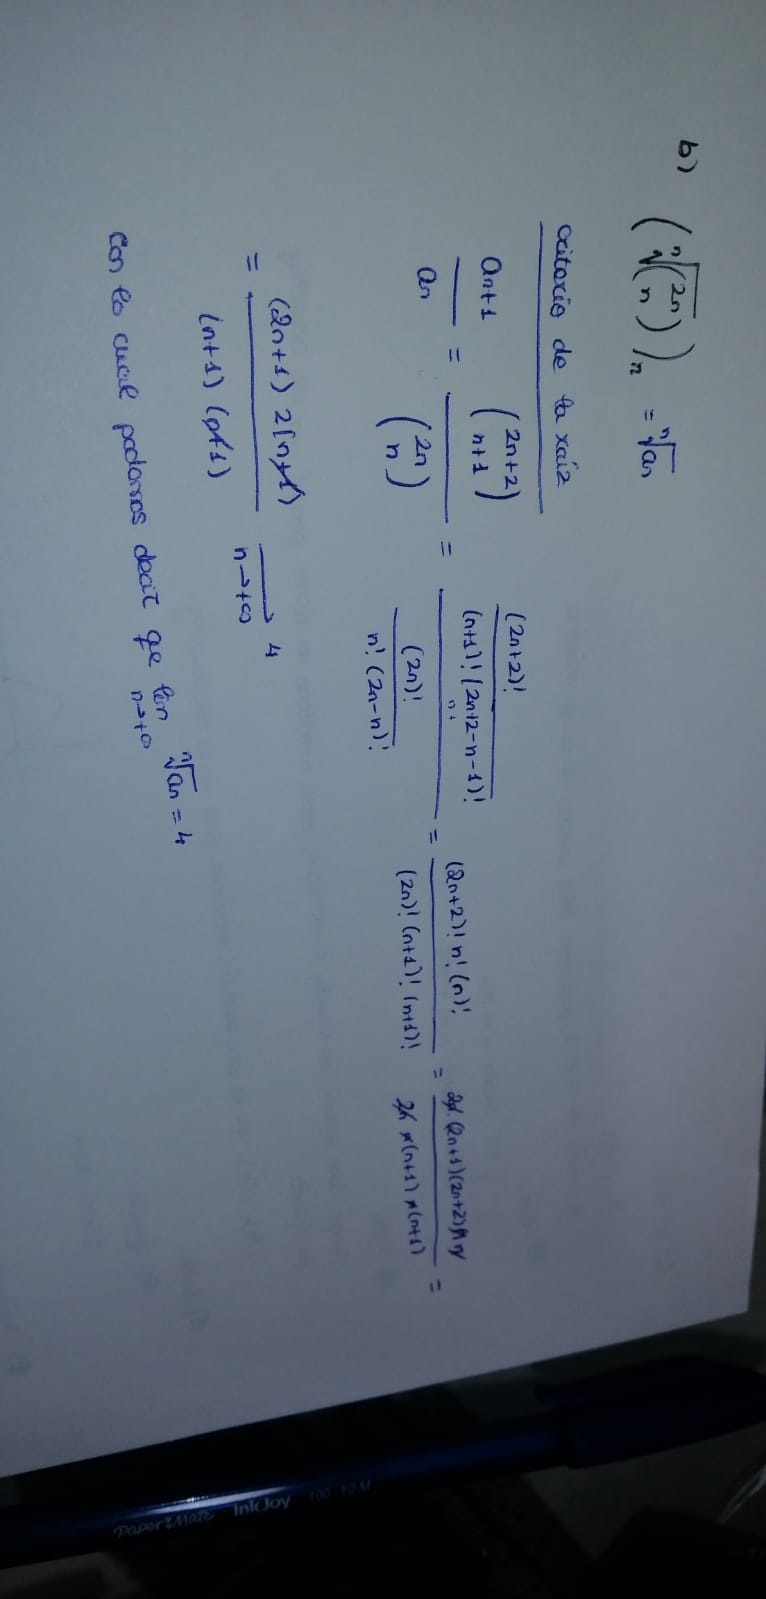 b) (ⁿ√(2n n))ₙ = ⁿ√an
criterio de la raíz
an+1 / an = (2n+2 n+1) / (2n n) = ((2n+2)! / (n+1)! (2n+2-n-1)!) / ((2n)! / n! (2n-n)!) = (2n+2)! n! (n)! / (2n)! (n+1)! (n+1)! = 2n (2n+1)(2n+2) n n / 2n n(n+1) n(n+1) =
= (2n+1) 2(n+1) / (n+1) (n+1) → n→+∞ 4
con lo cual podemos decir que lim n→+∞ ⁿ√an = 4
PaperMate InkJoy 100 1.0 M